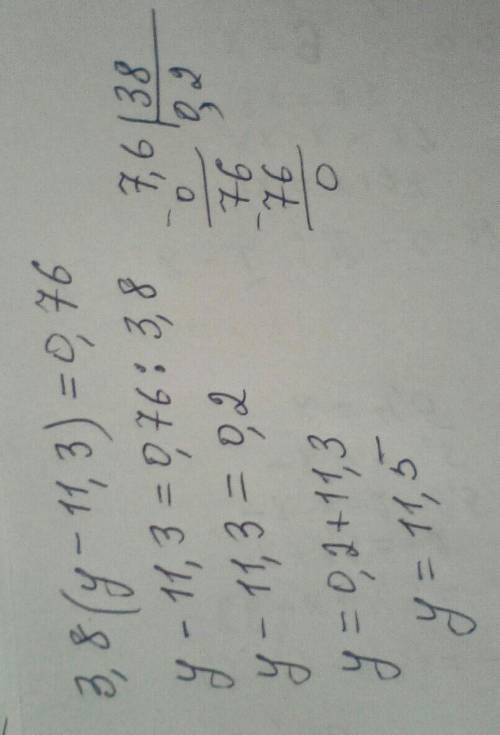 3,8(y-11,3)=0,76
y-11,3=0,76:3,8
y-11,3=0,2
y=0,2+11,3
y=11,5
7,6|38
-0 0,2
76
-76
0